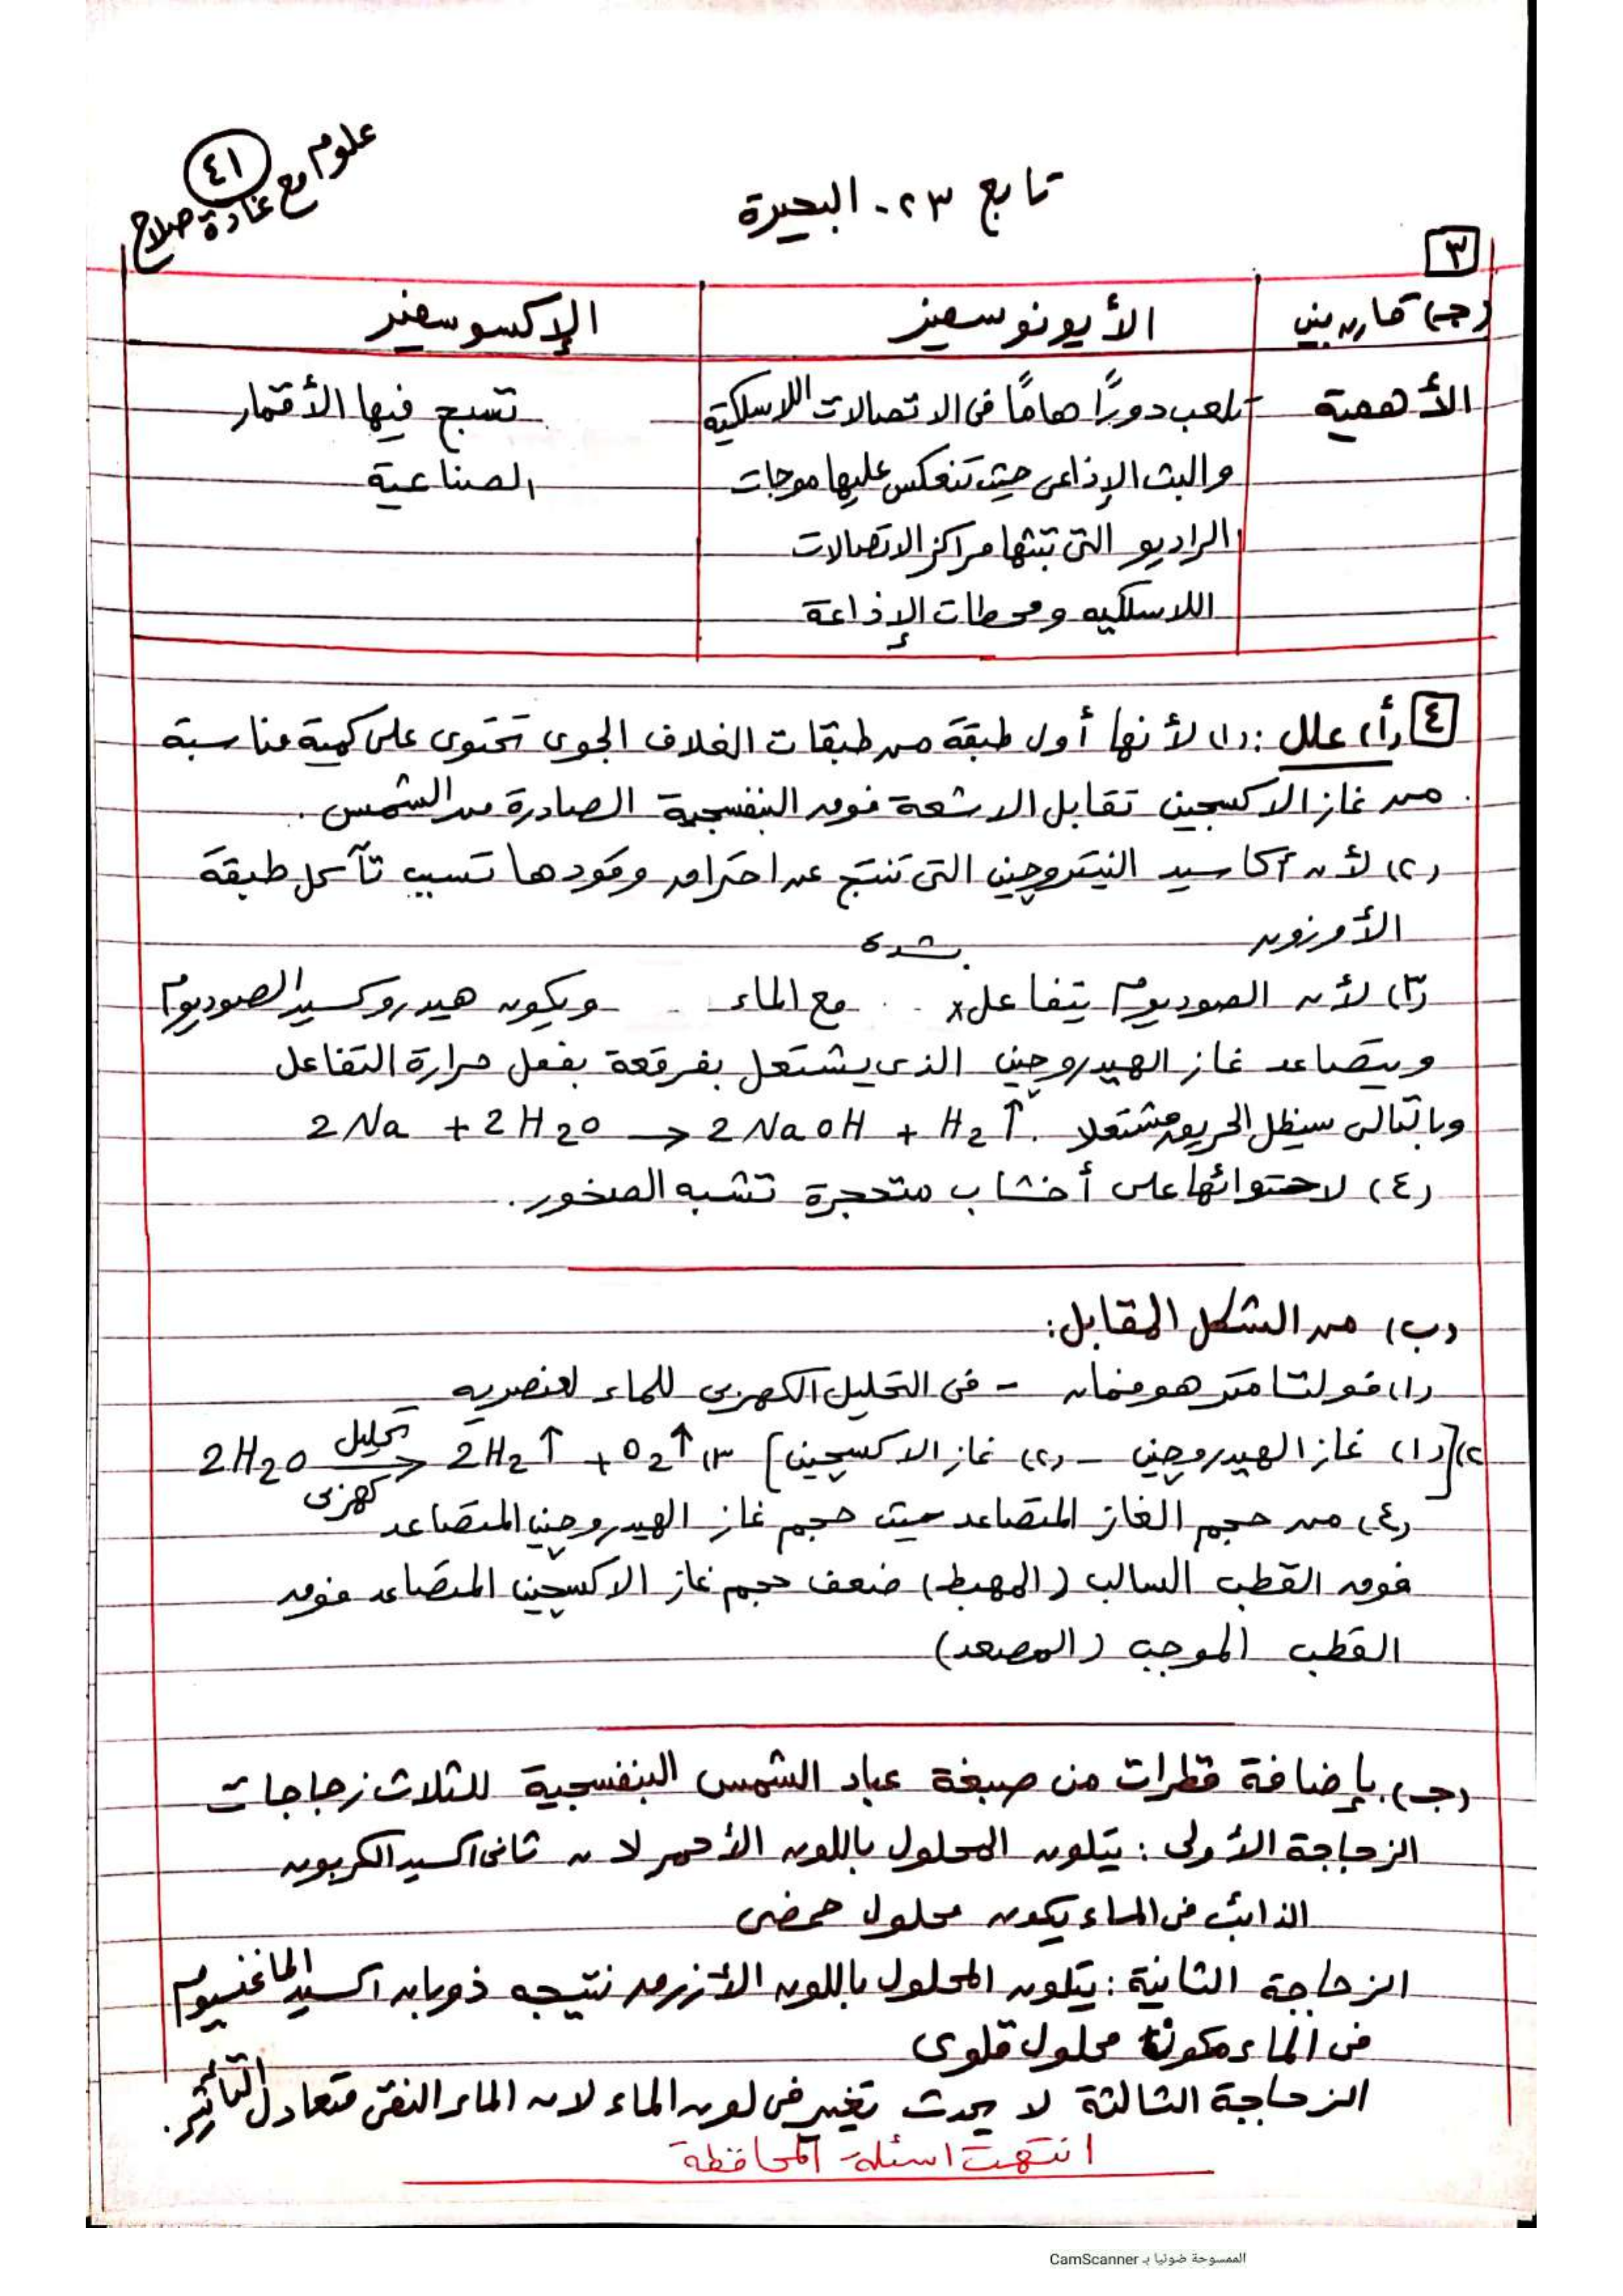 علوم مع غادة صلاح
٤١
تابع ٢٣ - البحيرة
٣
(جـ) قارن بين | الأيونوسفير | الإكسوسفير
الأهمية | تلعب دورًا هامًا فى الاتصالات اللاسلكية | تسبح فيها الأقمار
والبث الإذاعى حيث تنعكس عليها موجات | الصناعية
الراديو التى تبثها مراكز الاتصالات
اللاسلكيه ومحطات الإذاعة
٤ (أ) علل : (١) لأنها أول طبقة من طبقات الغلاف الجوى تحتوى على كمية مناسبة
من غاز الاكسجين تقابل الاشعة فوق البنفسجية الصادرة من الشمس .
(٢) لأن أكاسيد النيتروجين التى تنتج عن احتراق وقودها تسبب تآكل طبقة
الأوزون
(٣) لأن الصوديوم يتفاعل بشدة مع الماء ويكون هيدروكسيد الصوديوم
ويتصاعد غاز الهيدروجين الذى يشتعل بفرقعة بفعل حرارة التفاعل
وبالتالى سيظل الحريق مشتعلا . 2Na + 2H2O → 2NaOH + H2↑
(٤) لاحتوائها على أخشاب متحجرة تشبه الصخور .
(ب) من الشكل المقابل :
(١) فولتامتر هوفمان - فى التحليل الكهربى للماء لعنصريه
٢) [(١) غاز الهيدروجين - (٢) غاز الاكسجين] ٣) 2H2O تحليل كهربى → 2H2↑ + O2↑
(٤) من حجم الغاز المتصاعد حيث حجم غاز الهيدروجين المتصاعد
فوق القطب السالب (المهبط) ضعف حجم غاز الاكسجين المتصاعد فوق
القطب الموجب (المصعد)
(جـ) بإضافة قطرات من صبغة عباد الشمس البنفسجية للثلاث زجاجات
الزجاجة الأولى : يتلون المحلول باللون الأحمر لان ثانى اكسيد الكربون
الذائب فى الماء يكون محلول حمضى
الزجاجة الثانية : يتلون المحلول باللون الأزرق نتيجه ذوبان اكسيد الماغنسيوم
فى الماء مكونًا محلول قلوى
الزجاجة الثالثة لا يحدث تغير فى لون الماء لان الماء النقى متعادل التأثير .
انتهت اسئلة المحافظة
الممسوحة ضوئيا بـ CamScanner